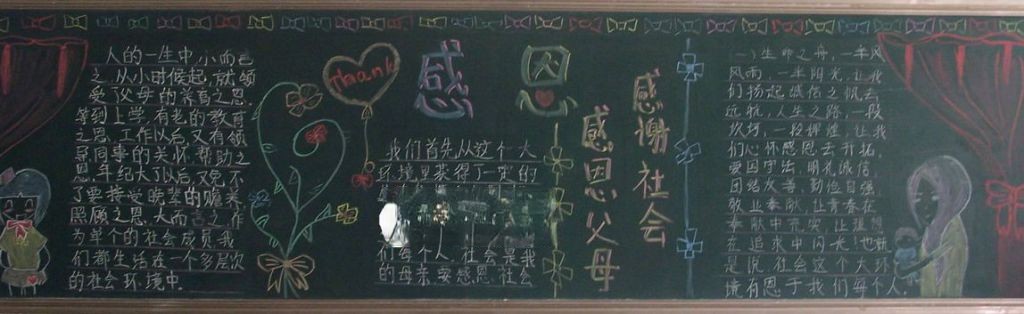 人的一生中,小而言
之,从小时候起,就领
受了父母的养育之恩,
等到上学,有老师的教育
之恩,工作以后,又有领
导同事的关怀,帮助之
恩,年纪大了以后,又免不
了要接受晚辈的赡养
照顾之恩,大而言之,作
为单个的社会成员,我
们都生活在一个多层次
的社会环境中.
Thank
感恩
我们首先从这个大
环境里获得了一定的
们每个人.社会是我
的母亲要感恩社会
感恩父母
感谢社会
一)生命之舟,一半风
风雨,一半阳光,让我
们扬起诚信之帆去
远航,人生之路,一段
坎坷,一段辉煌,让我
们心怀感恩去开拓,
爱国守法,明礼诚信,
团结友善,勤俭自强,
敬业奉献,让青春在
奉献中完美,让理想
在追求中闪光!也就
是说,社会这个大环
境有恩于我们每个人.